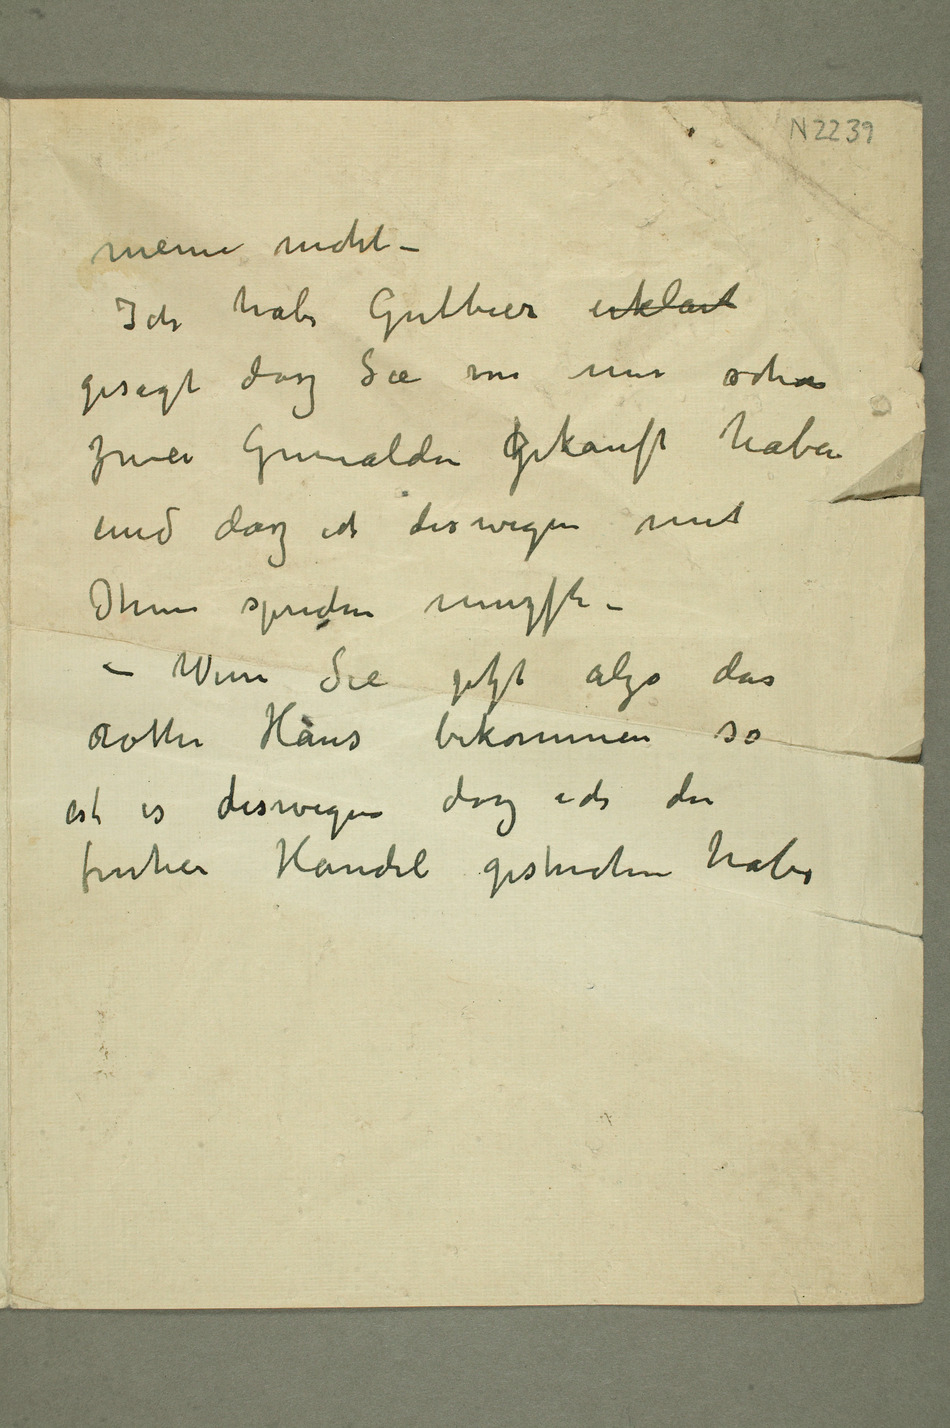 N 2239
meine nicht –
Ich habe Gutbier erklärt
gesagt dasz Sie von mir schon
zwei Gemälden gekauft haben
und dasz ich deswegen mit
Ihnen sprechen muszte –
– Wenn Sie jetzt also das
rothe Haus bekommen so
ist es deswegen dasz ich den
früher Handel gestrichen habe